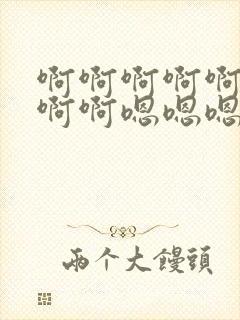 啊啊啊啊啊
啊啊嗯嗯嗯
两个大馒頭